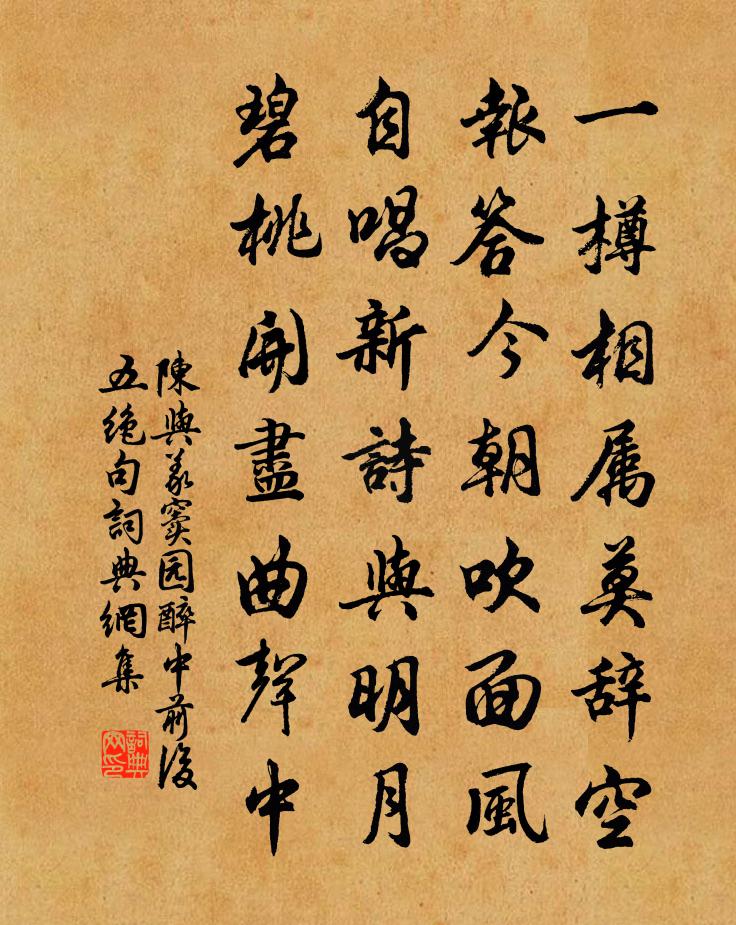 一樽相属莫辞空
報答今朝吹面風
自唱新詩與明月
碧桃開盡曲聲中
陳與義竇园醉中前後
五绝句詞典網集
詞典網印